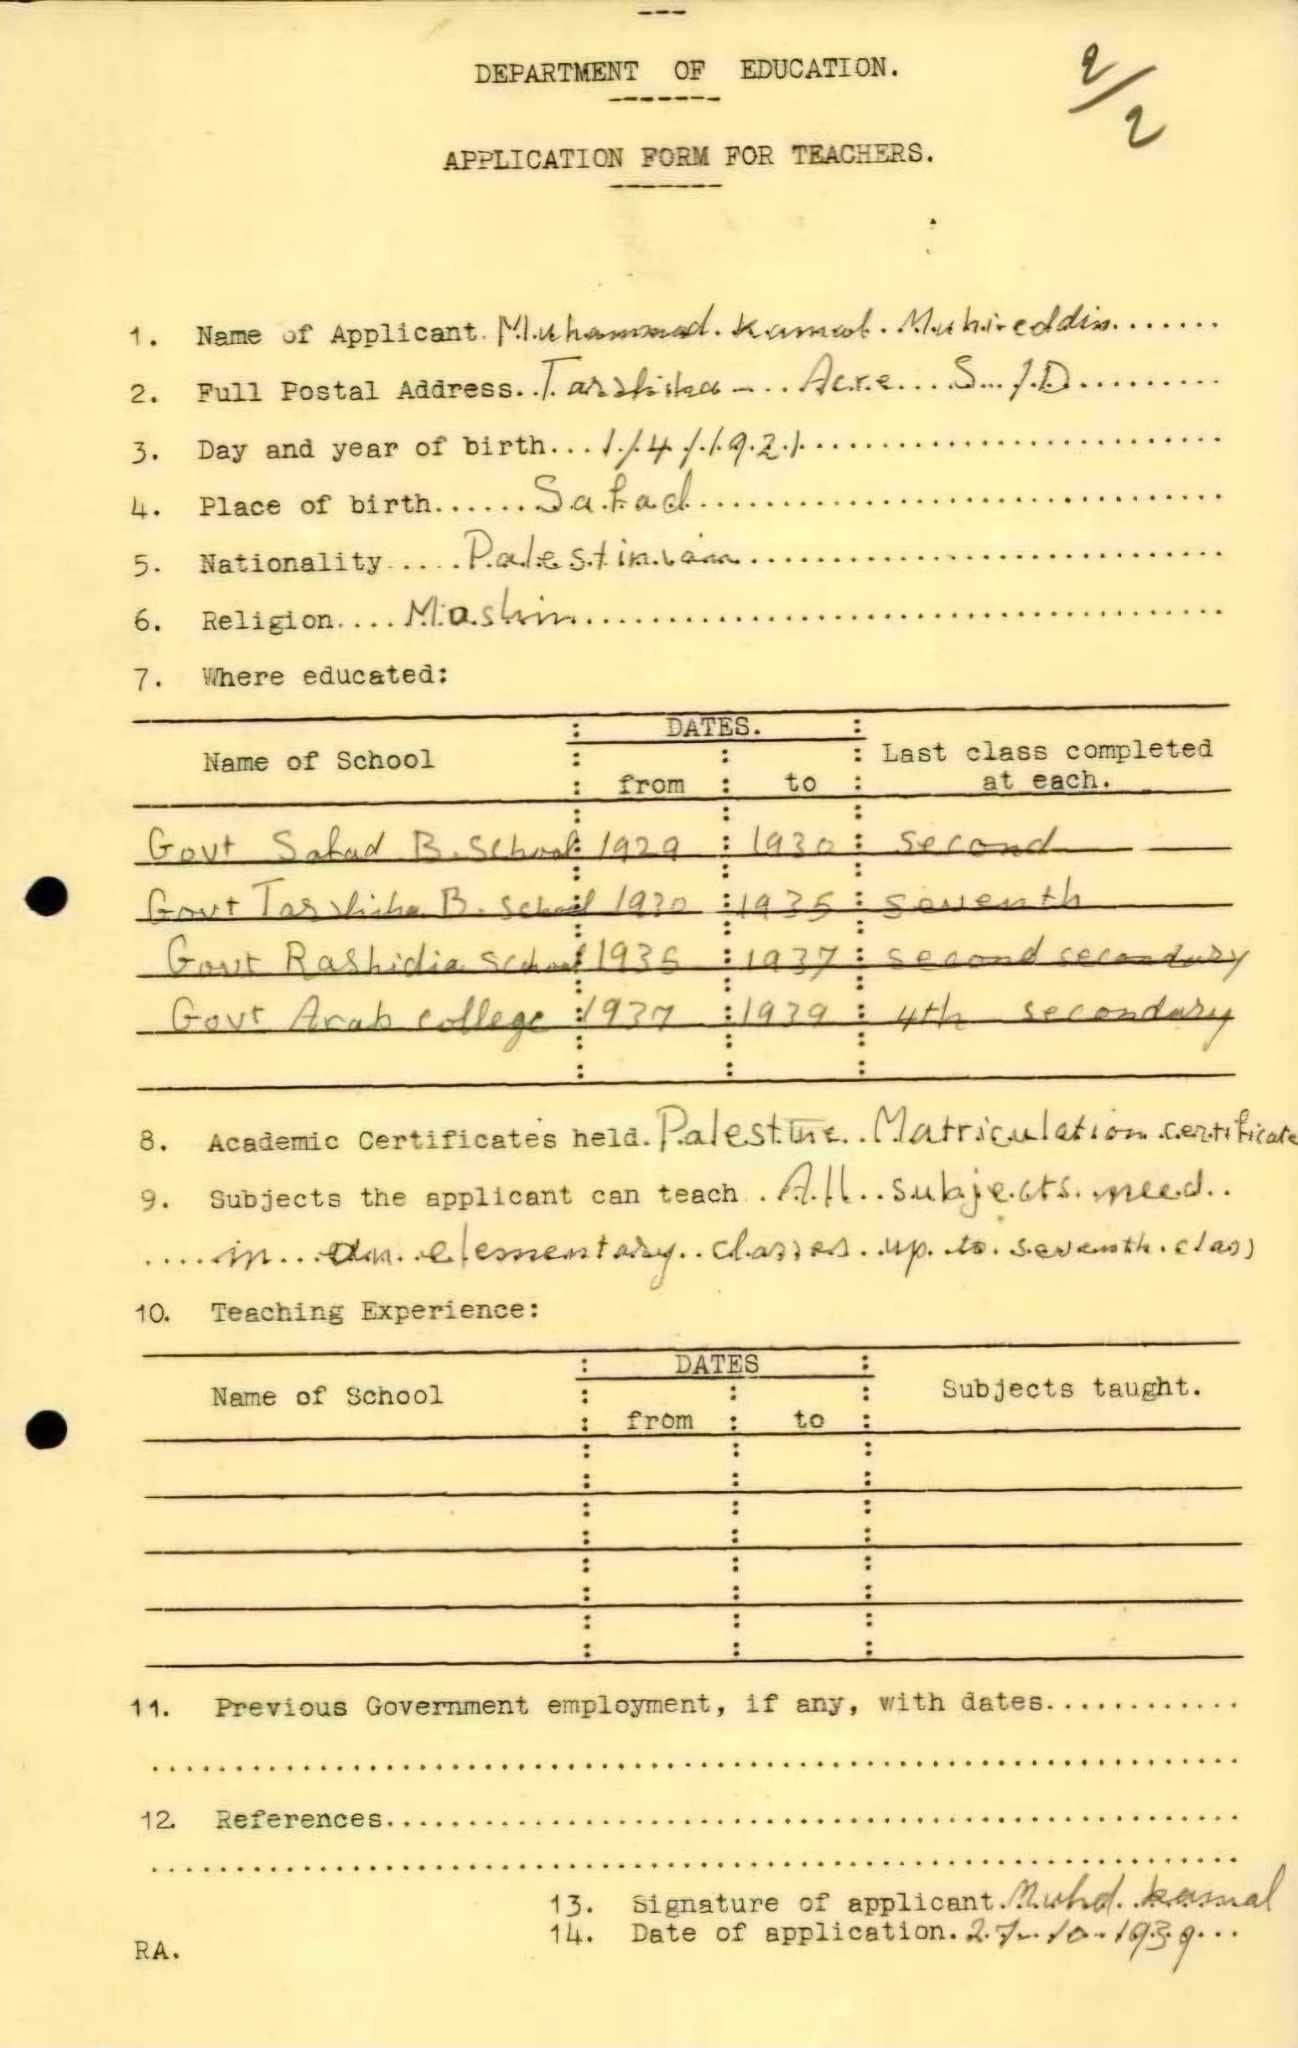 DEPARTMENT OF EDUCATION.
2/2
APPLICATION FORM FOR TEACHERS.
1. Name of Applicant Muhammad Kamal Muhireddin
2. Full Postal Address Tarshiha - Acre S/D
3. Day and year of birth 1/4/1921
4. Place of birth Safad
5. Nationality Palestinian
6. Religion Moslim
7. Where educated:
Name of School DATES. Last class completed
from to at each.
Govt Safad B. School 1929 1930 second
Govt Tarshiha B. School 1930 1935 seventh
Govt Rashidia School 1935 1937 second secondary
Govt Arab college 1937 1939 4th secondary
8. Academic Certificates held. Palestine Matriculation certificate
9. Subjects the applicant can teach All subjects need
in elementary classes up to seventh class
10. Teaching Experience:
Name of School DATES Subjects taught.
from to
11. Previous Government employment, if any, with dates
12. References
13. Signature of applicant Muhd. Kamal
14. Date of application. 27-10-1939
RA.